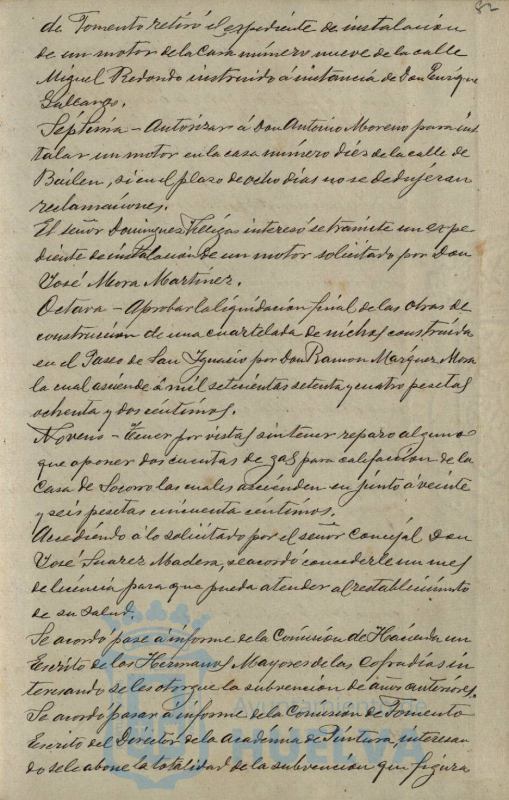 82
de Fomento retiró el expediente de instalación
de un motor de la casa número nueve de la calle
Miguel Redondo instruido á instancia de Don Enrique
Séptima - Autorizar á Don Antonio Moreno para ins
talar un motor en la casa número diez de la calle de
Bailen, si en el plazo de ocho días no se dedujeran
reclamaciones.
El señor Dominguez Villegas interesó se tramite un expe
diente de instalación de un motor solicitado por Don
José Mora Martínez.
Octava - Aprobar la liquidación final de las obras de
construccion de una cuartelada de nichos construida
en el Paseo de San Ignacio por Don Ramon Marquez Mora
la cual asciende á mil setecientas setenta y cuatro pesetas
ochenta y dos centimos.
Noveno - Tener por vistas sin tener reparo alguno
que oponer dos cuentas de gas para calefacción de la
Casa de Socorro las cuales ascienden en junto á veinte
y seis pesetas cincuenta céntimos.
Accediendo á lo solicitado por el señor Concejal Don
José Suarez Madera, se acordó concederle un mes
de licencia para que pueda atender al restablecimiento
de su salud.
Se acordó pase á informe de la Comision de Hacienda un
Escrito de los Hermanos Mayores de las Cofradías in
teresando se les otorgue la subvención de años anteriores.
Se acordó pasar á informe de la Comisión de Fomento
Escrito del Director de la Academia de Pintura, interesan
do se le abone la totalidad de la subvención que figura
Ayuntamiento de
HUELVA